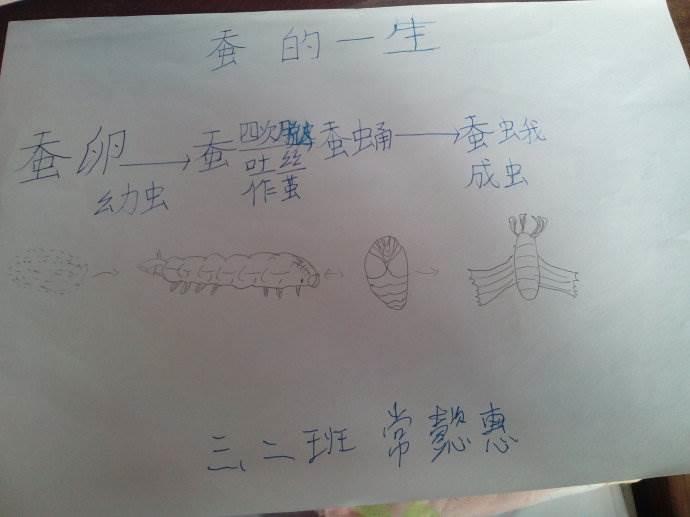 蚕的一生
蚕卵→蚕 四次脱皮 蚕蛹→蚕蛾
幼虫 吐丝 成虫
作茧
三、二班 常懿惠